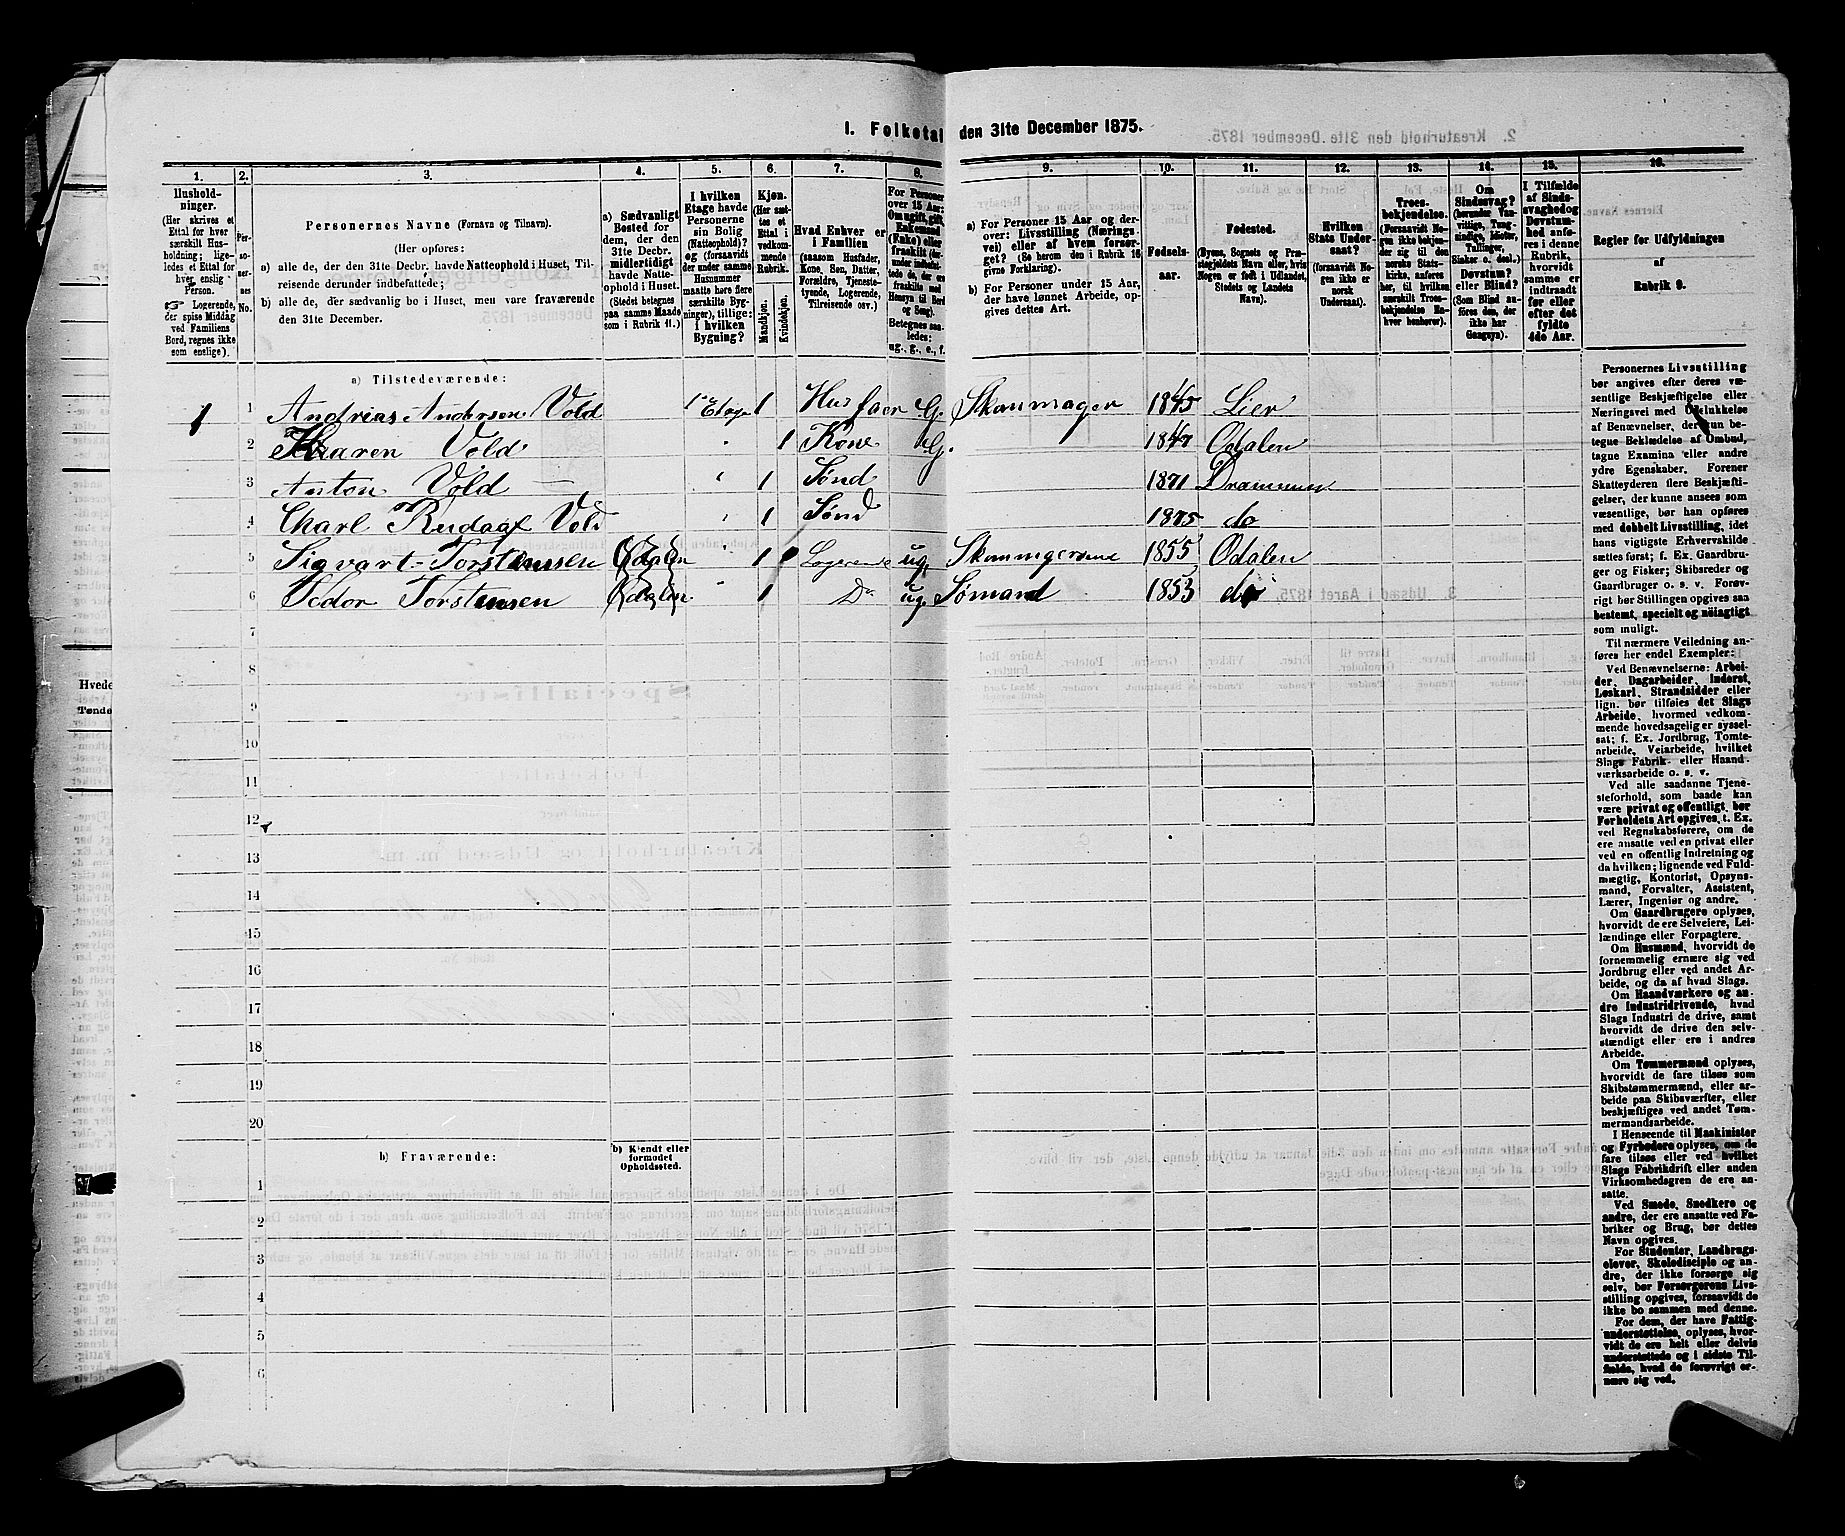 I. Folketal den 31te December 1875.
1. 2. 3. 4. 5. 6. 7. 8. 9. 10. 11. 12. 13. 14. 15. 16.
Hushold-
ninger.
(Her skrives et
Ettal for hver
særskilt Hus-
holdning; lige-
ledes et Ettal for
hver enslig
Person.
Logerende,
der spise Middag
ved Familiens
Bord, regnes ikke
som enslige).
Per-
so-
ner-
nes
No.
Personernes Navne (Fornavn og Tilnavn).
(Her opføres:
a) alle de, der den 31te Decbr. havde Natteophold i Huset, Til-
reisende derunder indbefattede;
b) alle de, der sædvanlig bo i Huset, men vare fraværende
den 31te December.
a) Sædvanligt
Bosted for
dem, der den
31te Decbr.
midlertidigt
havde Natte-
ophold i Huset.
(Stedet betegnes
paa samme Maade
som i Rubrik 11.)
I hvilken
Etage havde
Personerne
sin Bolig
(Natteophold)?
og (forsaavidt
der under samme
Husnummer
maatte høre flere
særskilte Byg-
ninger), tillige:
i hvilken
Bygning?
Kjøn.
(Her sæt-
tes et
Ettal i
vedkom-
mende
Rubrik.
Mandkjøn.
Kvindekjøn.
Hvad Enhver er
i Familien
(saasom Husfader,
Kone, Søn, Datter,
Forældre, Tjeneste-
tyende, Logerende,
Tilreisende osv.)
For Personer
over 15 Aar:
Om ugift, gift,
Enkemand
(Enke) eller
fraskilt
Betegnes saa-
ledes:
ug., g., e., f.
a) For Personer 15 Aar og der-
over: Livsstilling (Nærings-
vei) eller af hvem forsør-
get? (Se herom den i Rubrik 16
givne Forklaring).
b) For Personer under 15 Aar,
der have lønnet Arbeide, op-
gives dettes Art.
Fødsels-
aar.
Fødested.
(Byens, Sognets og Præ-
stegjeldets Navn eller, hvis
Nogen er født i Udlandet,
Stedets og Landets
Navn).
Hvilken
Stats Under-
saat?
(forsaavidt No-
gen ikke er
norsk
Undersaat).
Troes-
bekjendelse.
(Forsaavidt No-
gen ikke bekjen-
der sig til den
norske Stats-
kirke, anføres
her, til hvilken
særskilt Troes-
bekjendelse En-
hver henhører).
Om
Sindssvag?
(herunder Van-
vittige, Tung-
sindige, Idioter,
Tullinger,
Sinker o. desl.).
Døvstum?
eller Blind?
(Som Blind an-
føres den, der
ikke har
Gangsyn).
I Tilfælde
af Sinds-
svaghed og
Døvstum-
hed anfø-
res i denne
Rubrik,
hvorvidt
samme er
indtraadt
før eller
efter det
fyldte
4de Aar.
Regler for Udfyldningen
af
Rubrik 9.
a) Tilstedeværende:
1 1 Andrias Andersen Vold 1ste Etage 1 Husfaer G. Skoumager 1845 Lier
2 Kaaren Vold " 1 Kone G. 1847 Odalen
3 Anton Vold " 1 Sønd 1871 Drammen
4 Charl Rudagf Vold " 1 Sønd 1875 do
5 Sigvart Torstensen Odalen " 1 Logerende ug. 1855 Odalen
6 Tedor Torstensen Odalen " 1 Do ug. Sømand 1853 do
7
8
9
10
11
12
13
14
15
16
17
18
19
20
b) Fraværende:
b) Kjendt eller
formodet
Opholdssted.
1
2
3
4
5
6
Personernes Livsstilling
bør angives efter deres væ-
sentlige Beskjæftigelse eller
Næringsvei med Udelukkelse
af Benævnelser, der kun be-
tegne Beklædelse af Ombud,
tagne Examina eller andre
ydre Egenskaber. Forener
Skatteyderen flere Beskjæfti-
gelser, der kunne ansees som
væsentlige, bør han opføres
med dobbelt Livsstilling, idet
hans vigtigste Erhvervskilde
sættes først; f. Ex. Gaardbru-
ger og Fisker; Skibsreder og
Gaardbruger o. s. v. Forøv-
rigt bør Stillingen opgives saa
bestemt, specielt og nøiagtigt
som muligt.
Til nærmere Veiledning an-
føres her endel Exempler:
Ved Benævnelserne: Arbei-
der, Dagarbeider, Inderst,
Løskarl, Strandsidder eller
lign. bør tilføies det Slags
Arbeide, hvormed vedkom-
mende hovedsagelig er syssel-
sat; f. Ex. Jordbrug, Tomte-
arbeide, Veiarbeide, hvilket
Slags Fabrik- eller Haand-
værksarbeide o. s. v.
Ved alle saadanne Tjene-
steforhold, som baade kan
være privat og offentligt, bør
Forholdets Art opgives, t. Ex.
ved Regnskabsførere, om de
ere ansatte ved en privat eller
ved en offentlig Indretning og
da hvilken; lignende ved Fuld-
mægtig, Kontorist, Opsyns-
mand, Forvalter, Assistent,
Lærer, Ingeniør og andre.
Om Gaardbrugere oplyses,
hvorvidt de ere Selveiere, Lei-
lændinge eller Forpagtere.
Om Husmænd, hvorvidt de
fornemmelig ernære sig ved
Jordbrug eller ved andet Ar-
beide, og da af hvad Slags.
Om Haandværkere og an-
dre Industridrivende, hvad
Slags Industri de drive, samt
hvorvidt de drive den selv-
stændigt eller ere i andres
Arbeide.
Om Tømmermænd oplyses,
hvorvidt de fare tilsøs som
Skibstømmermænd, eller ar-
beide paa Skibsværfter, eller
beskjæftiges ved andet Tøm-
mermandsarbeide.
I Henseende til Maskinister
og Fyrbødere oplyses, om de
fare tilsøs eller ved hvilket
Slags Fabrikdrift eller anden
Virksomhedsgren de ere an-
satte.
Ved Smede, Snedkere og
andre, der ere ansatte ved Fa-
briker og Brug, bør dettes
Navn opgives.
For Studenter, Landbrugs-
elever, Skoledisciple og an-
dre, der ikke forsørge sig
selv, bør Forsørgerens Livs-
stilling opgives, forsaavidt de
ikke bo sammen med denne.
For dem, der have Fattig-
understøttelse, oplyses, hvor-
vidt de ere helt eller delvis
understøttede og i sidste Til-
fælde, hvad de forøvrigt er-
nære sig ved.
Hvede
Tønde